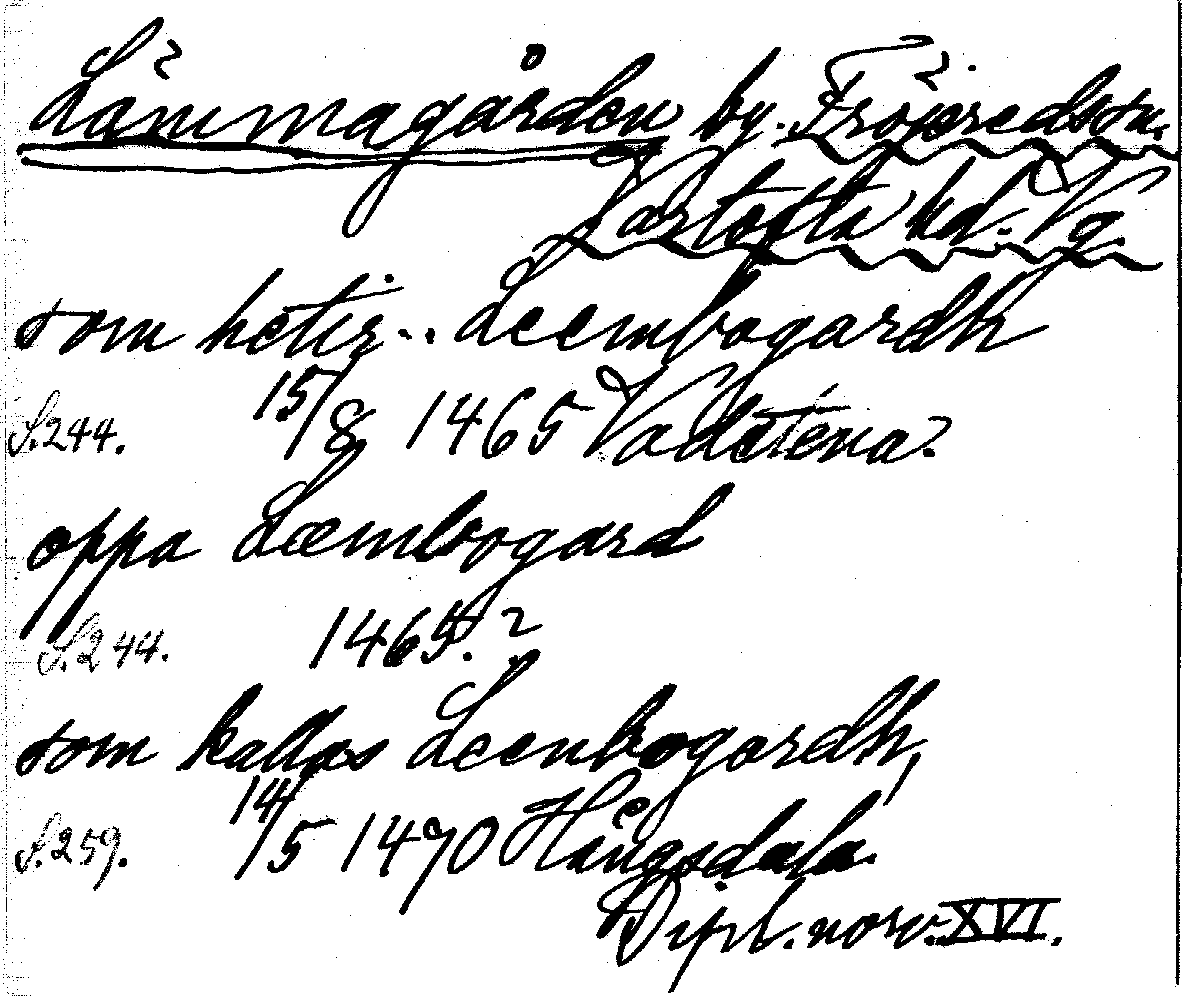 Lämmagården by. Fröjereds sn.
Vartofta hd. Vg.
som hetir... Leembogardh
S.244. 15/8 1465 Vadstena.
oppa Læmbogard
S.244. 1465.?
som kallas Leenbogardh,
S.259. 14/5 1470 Hångsdala.
Dipl. norv. XVI.